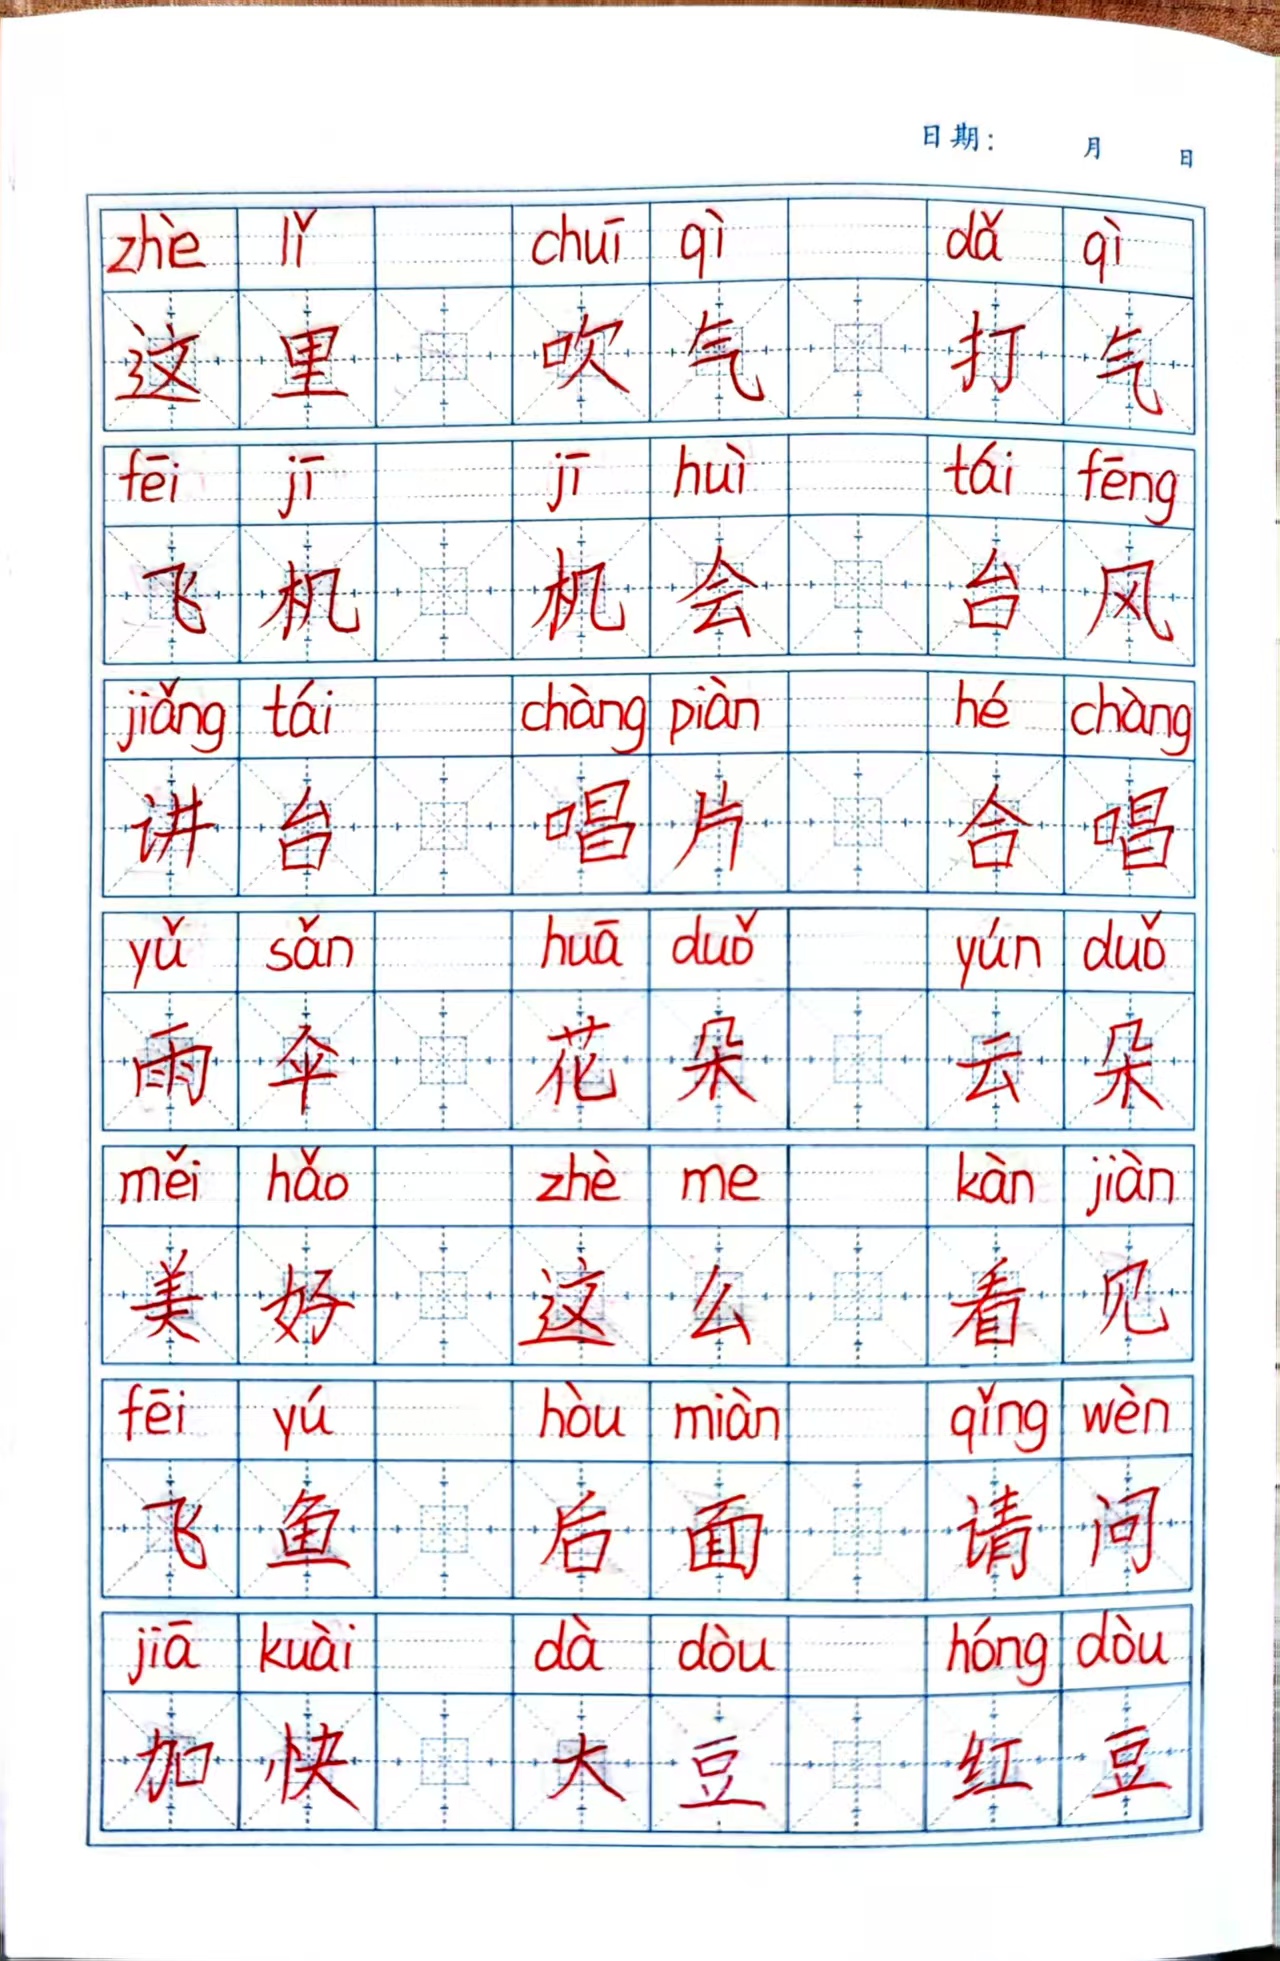 日期： 月 日
zhè lǐ chuī qì dǎ qì
这里 吹气 打气
fēi jī jī huì tái fēng
飞机 机会 台风
jiǎng tái chàng piàn hé chàng
讲台 唱片 合唱
yǔ sǎn huā duǒ yún duǒ
雨伞 花朵 云朵
měi hǎo zhè me kàn jiàn
美好 这么 看见
fēi yú hòu miàn qǐng wèn
飞鱼 后面 请问
jiā kuài dà dòu hóng dòu
加快 大豆 红豆